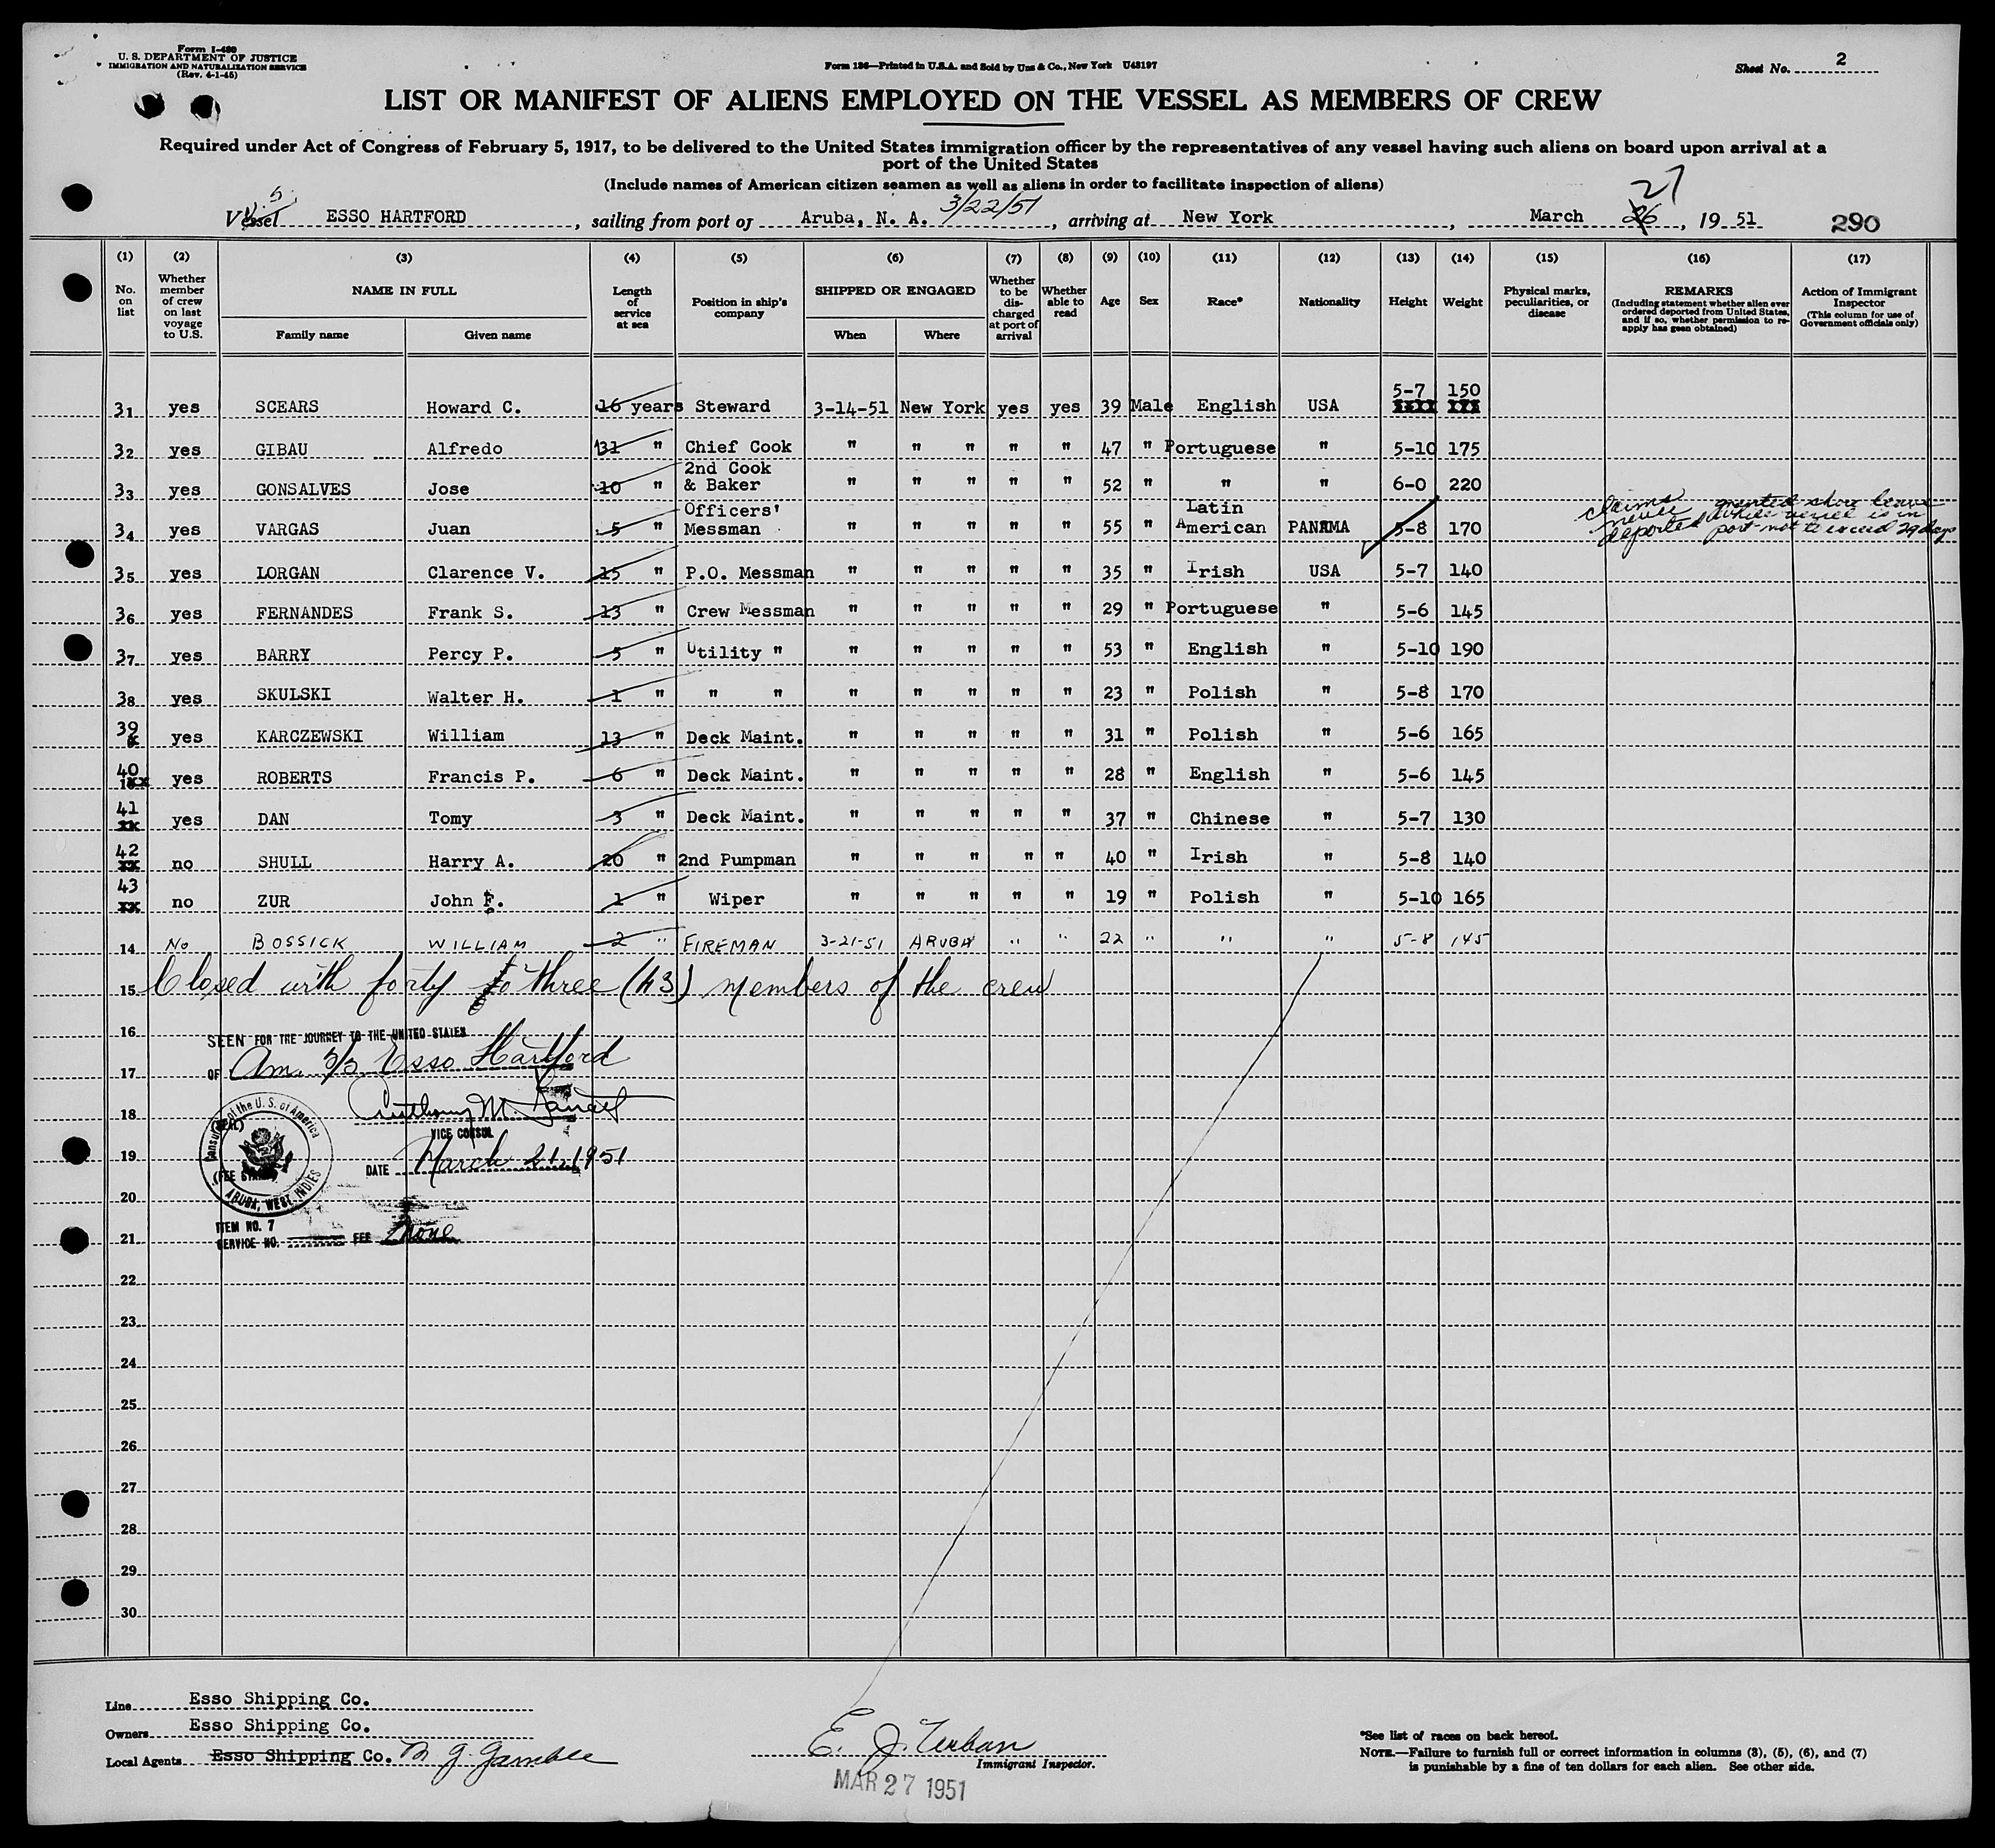 Form I-480
U. S. DEPARTMENT OF JUSTICE
IMMIGRATION AND NATURALIZATION SERVICE
(Rev. 4-1-45)
Form 186—Printed in U.S.A. and Sold by Unz & Co., New York U48197
Sheet No. 2
LIST OR MANIFEST OF ALIENS EMPLOYED ON THE VESSEL AS MEMBERS OF CREW
Required under Act of Congress of February 5, 1917, to be delivered to the United States immigration officer by the representatives of any vessel having such aliens on board upon arrival at a
port of the United States
(Include names of American citizen seamen as well as aliens in order to facilitate inspection of aliens)
27
Vessel ESSO HARTFORD, sailing from port of Aruba, N. A. 3/22/51, arriving at New York, March 26, 19 51 290
(1) (2) (3) (4) (5) (6) (7) (8) (9) (10) (11) (12) (13) (14) (15) (16) (17)
No. on list
Whether member of crew on last voyage to U.S.
NAME IN FULL
Family name Given name
Length of service at sea
Position in ship's company
SHIPPED OR ENGAGED
When Where
Whether to be discharged at port of arrival
Whether able to read
Age
Sex
Race*
Nationality
Height
Weight
Physical marks, peculiarities, or disease
REMARKS
(Including statement whether alien ever ordered deported from United States, and if so, whether permission to re-apply has geen obtained)
Action of Immigrant Inspector
(This column for use of Government officials only)
31 yes SCEARS Howard C. 16 years Steward 3-14-51 New York yes yes 39 Male English USA 5-7 150
32 yes GIBAU Alfredo 31 " Chief Cook " " " " " 47 " Portuguese " 5-10 175
33 yes GONSALVES Jose 10 " 2nd Cook & Baker " " " " " 52 " " " 6-0 220
34 yes VARGAS Juan 5 " Officers' Messman " " " " " 55 " Latin American PANAMA 5-8 170 claims never deported granted shore leave while vessel is in port not to exceed 29 days
35 yes LORGAN Clarence V. 15 " P.O. Messman " " " " " 35 " Irish USA 5-7 140
36 yes FERNANDES Frank S. 13 " Crew Messman " " " " " 29 " Portuguese " 5-6 145
37 yes BARRY Percy P. 5 " Utility " " " " " " 53 " English " 5-10 190
38 yes SKULSKI Walter H. 1 " " " " " " " " 23 " Polish " 5-8 170
39 yes KARCZEWSKI William 13 " Deck Maint. " " " " " 31 " Polish " 5-6 165
40 yes ROBERTS Francis P. 6 " Deck Maint. " " " " " 28 " English " 5-6 145
41 yes DAN Tomy 3 " Deck Maint. " " " " " 37 " Chinese " 5-7 130
42 no SHULL Harry A. 20 " 2nd Pumpman " " " " " 40 " Irish " 5-8 140
43 no ZUR John F. 1 " Wiper " " " " " 19 " Polish " 5-10 165
14 No BOSSICK WILLIAM 2 " FIREMAN 3-21-51 ARUBA " " 22 " " " 5-8 145
15 Closed with forty three (43) members of the crew
16
SEEN FOR THE JOURNEY TO THE UNITED STATES
17
OF Am. S/S Esso Hartford
18
Anthony M.
VICE CONSUL
19
DATE March 21, 1951
Consulate of the U. S. of America
(SEAL)
(FEE STAMP)
ARUBA, WEST INDIES
20
ITEM NO. 7
21
SERVICE NO. FEE None
22
23
24
25
26
27
28
29
30
Line Esso Shipping Co.
Owners Esso Shipping Co.
Local Agents Esso Shipping Co. J. Gamble
E. J. Urban
Immigrant Inspector.
MAR 27 1951
*See list of races on back hereof.
NOTE.—Failure to furnish full or correct information in columns (3), (5), (6), and (7)
is punishable by a fine of ten dollars for each alien. See other side.